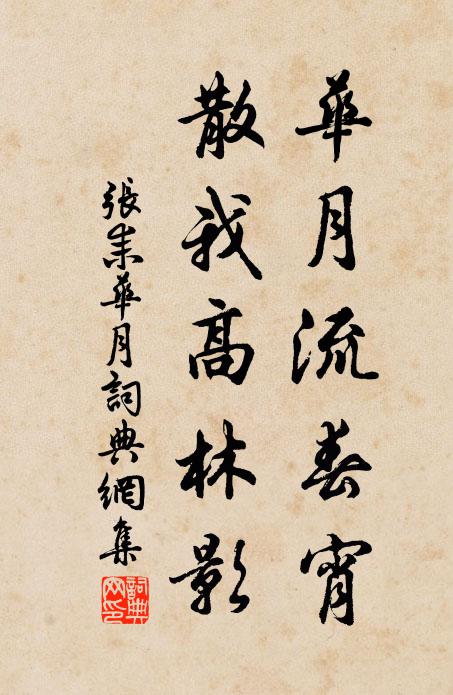 華月流春宵
散我高林影
張耒華月詞典網集
詞典網印